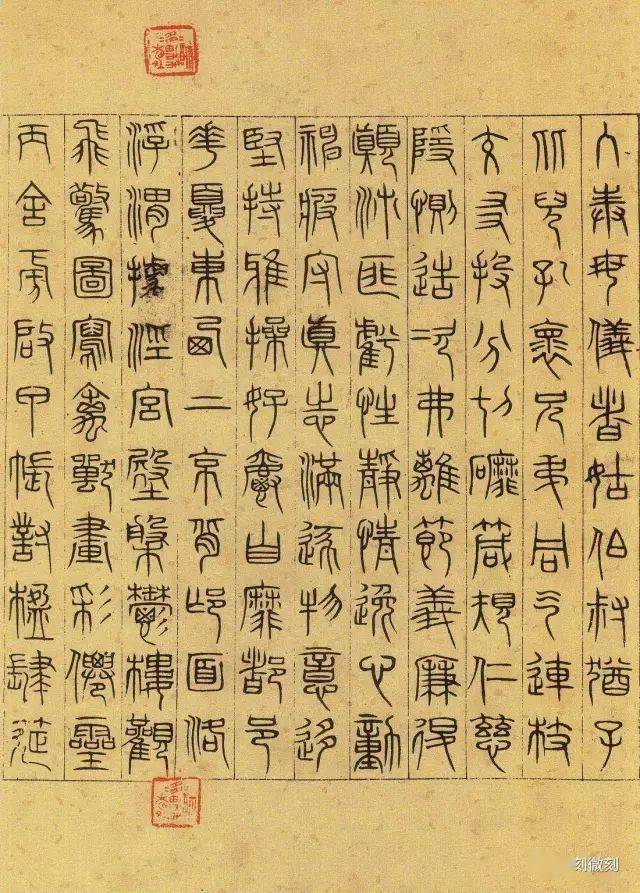 入奉母儀者姑伯叔猶子
比兒孔褱兄弟同气連枝
交友投分切磨箴規仁慈
隱惻造次弗離節義廉退
顛沛匪虧性靜情逸心動
神疲守真志滿逐物意移
堅持雅操好爵自靡都邑
華夏東西二京背邙面洛
浮渭據涇宮殿盤鬱樓觀
飛驚圖寫禽獸畫彩僊靈
丙舍旁啟甲帳對楹肆筵
刻微刻